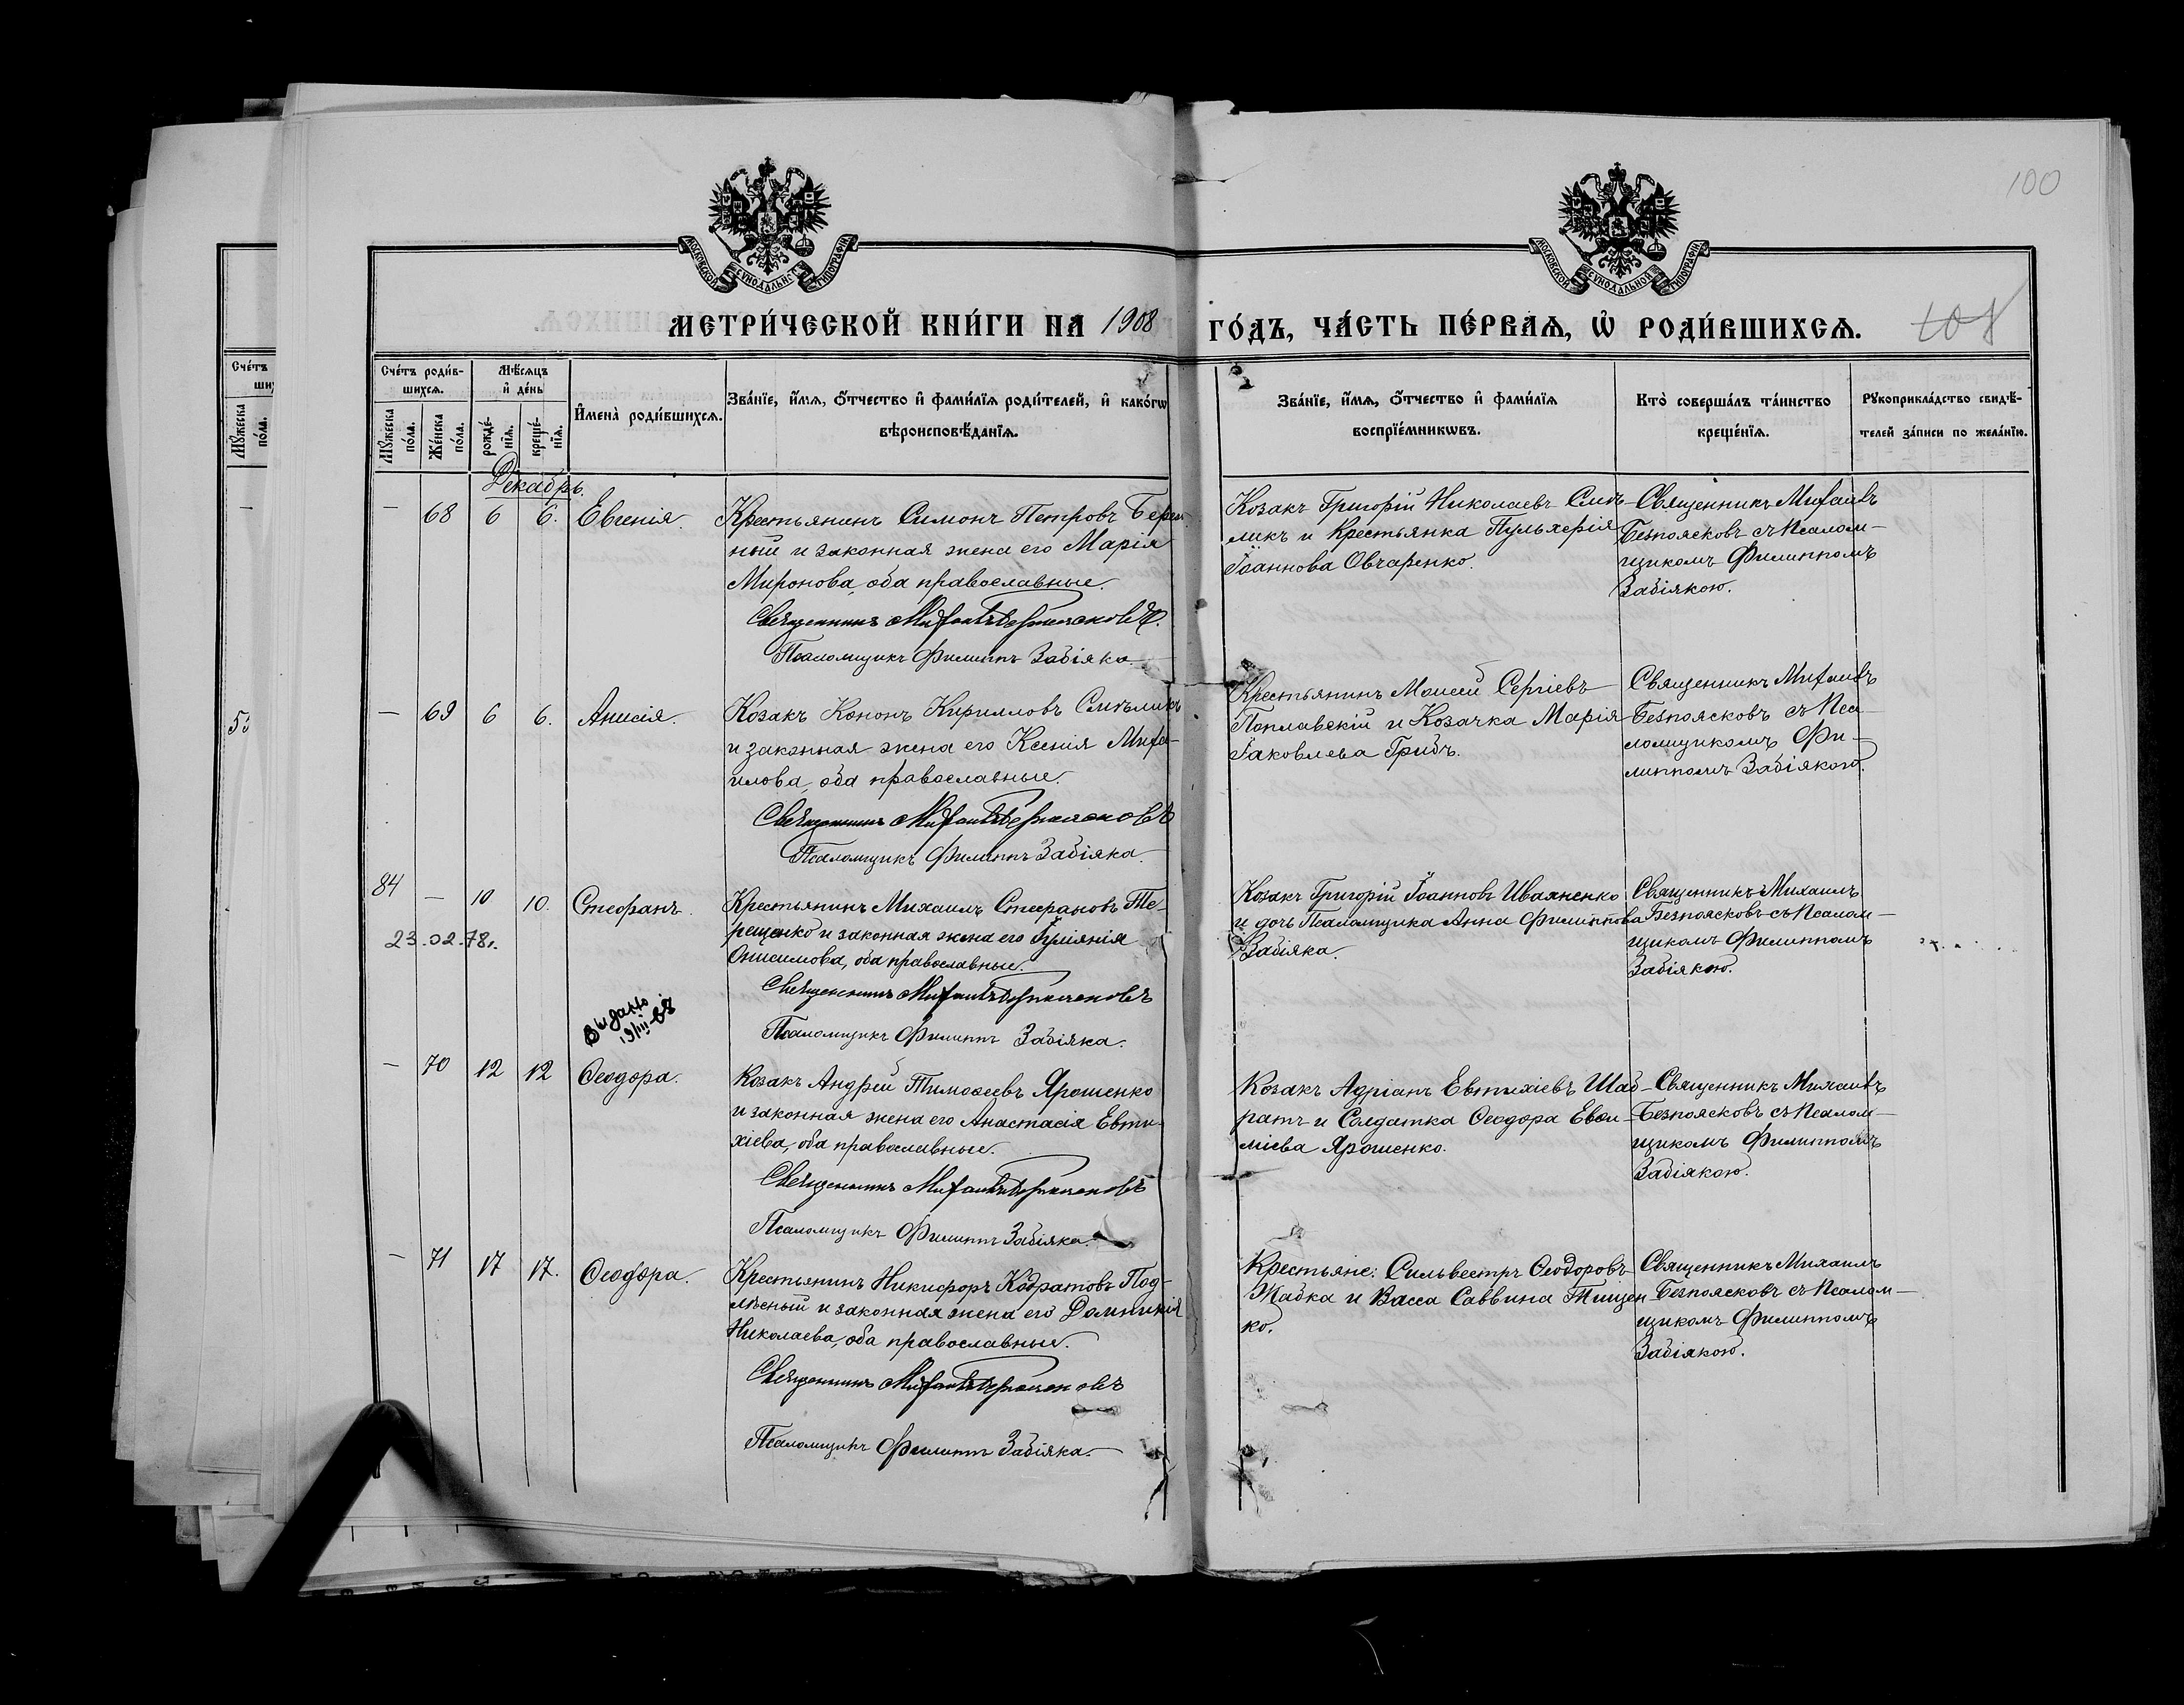 100
МОСКОВСКОЙ СѴНОДАЛЬНОЙ ТИПОГРАФІИ
МОСКОВСКОЙ СѴНОДАЛЬНОЙ ТИПОГРАФІИ
МЕТРИ́ЧЕСКОЙ КНИ́ГИ НА 1908 ГО́ДЪ, ЧА́СТЬ ПЕ́РВАѦ, Ѡ҆ РОДИ́ВШИХСѦ.
Сче́тъ роди́в-
шихсѧ.
Мꙋ́жеска по́ла.
Же́нска по́ла.
Мѣ́сѧцъ
и҆ де́нь
рожде́-
нїѧ.
креще́-
нїѧ.
И҆мена̀ роди́вшихсѧ.
Зва́нїе, и҆́мѧ, ѻ҆́тчество и҆ фами́лїѧ роди́телей, и҆ како́гѡ
вѣроисповѣ́данїѧ.
Зва́нїе, и҆́мѧ, ѻ҆́тчество и҆ фами́лїѧ
воспрїе́мникѡвъ.
Кто̀ соверша́лъ та́инство
креще́нїѧ.
Рꙋкоприкла́дство свидѣ́-
телей за́писи по жела́нїю.
Сче́тъ
Мꙋ́жеска
по́ла.
Декабрь.
— 68 6 6. Евгенія.
Крестьянинъ Симонъ Петровъ
ный и законная жена его Марія
Миронова, оба православные.
Священникъ Михаилъ Безпоясковъ.
Псаломщикъ Филиппъ Забіяка.
Козакъ Григорій Николаевъ Смѣ-
ликъ и Крестьянка Пульхерія
Іоаннова Овчаренко.
Священникъ Михаилъ
Безпоясковъ съ Псалом-
щикомъ Филиппомъ
Забіякою.
— 69 6 6. Анисія.
Козакъ Кононъ Кирилловъ Смѣликъ
и законная жена его Ксенія Миха-
илова, оба православные.
Священникъ Михаилъ Безпоясковъ
Псаломщикъ Филиппъ Забіяка.
Крестьянинъ Моисей Сергіевъ
Поплавскій и Козачка Марія
Іаковлева Грибъ.
Священникъ Михаилъ
Безпоясковъ съ Пса-
ломщикомъ Фи-
липпомъ Забіякою.
84 — 10 10. Стефанъ.
23.02.78г.
Выдано
19/III-68
Крестьянинъ Михаилъ Стефановъ Те-
рещенко и законная жена его Іуліанія
Онисимова, оба православные.
Священникъ Михаилъ Безпоясковъ
Псаломщикъ Филиппъ Забіяка.
Козакъ Григорій Іоанновъ Иваненко
и дочь Псаломщика Анна Филиппова
Забіяка.
Священникъ Михаилъ
Безпоясковъ съ Псалом-
щикомъ Филиппомъ
Забіякою.
— 70 12 12 Ѳеодора.
Козакъ Андрей Тимоѳеевъ Ярошенко
и законная жена его Анастасія Евти-
хіева, оба православные.
Священникъ Михаилъ Безпоясковъ
Псаломщикъ Филиппъ Забіяка.
Козакъ Адріанъ Евтихіевъ Шаб-
ратъ и Солдатка Ѳеодора Евѳи-
міева Ярошенко.
Священникъ Михаилъ
Безпоясковъ съ Псалом-
щикомъ Филиппомъ
Забіякою.
— 71 17 17. Ѳеодора.
Крестьянинъ Никифоръ Кодратовъ Под-
лѣсный и законная жена его Домникія
Николаева, оба православные.
Священникъ Михаилъ Безпоясковъ
Псаломщикъ Филиппъ Забіяка.
Крестьяне: Сильвестръ Ѳеодоровъ
Жабка и Васса Саввина Тищен
ко.
Священникъ Михаилъ
Безпоясковъ съ Псалом-
щикомъ Филиппомъ
Забіякою.